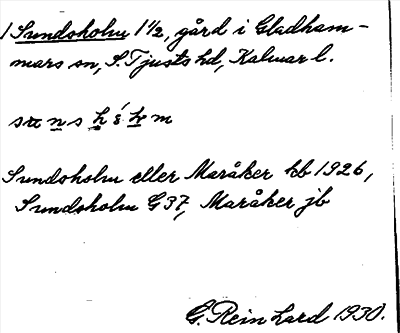 1 Sundsholm 1 1/2, gård i Gladham-
mars sn, S. Tjusts hd, Kalmar l.
Sundsholm eller Maråker kb 1926,
Sundsholm G 37, Maråker jb
G. Reinhard 1930.